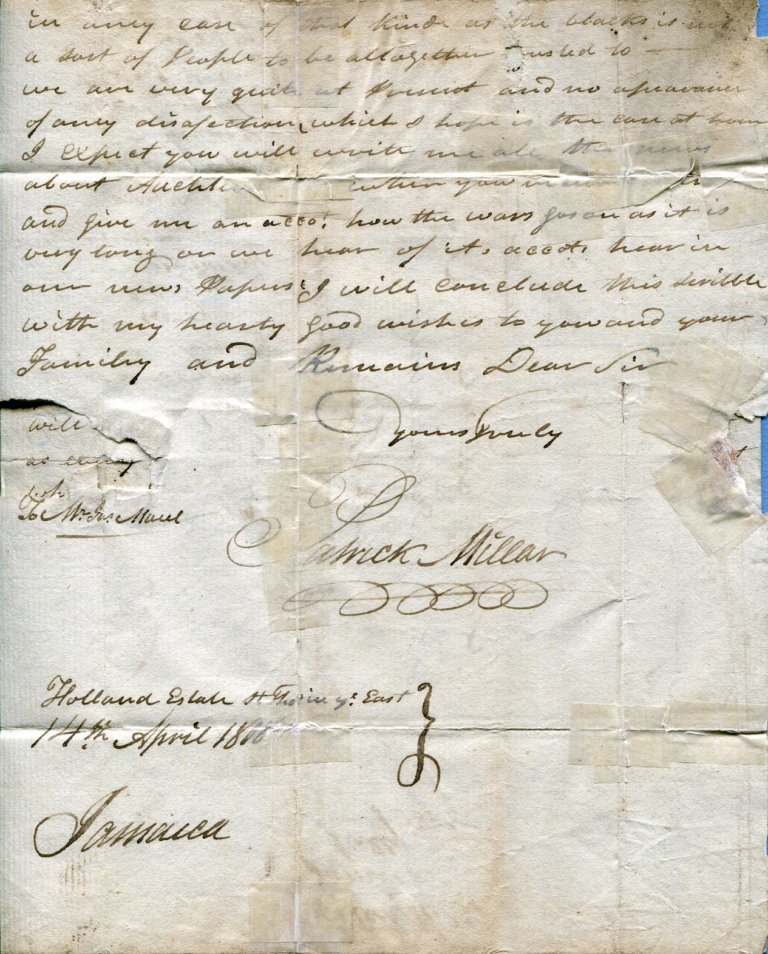 in any case of that Kinde as the blacks is not
a sort of People to be altogether trusted to —
we are very quite at Present and no apearance
of any disafection, which I hope is the case at hom
I expect you will write me all the news
about when you
and give me an accot. how the wars goes on as it is
very long or we hear of its accots hear in
our news Papers, I will conclude this scribble
with my hearty good wishes to yow and your
Family and Remains Dear Sir
yours truly
will
as
Patrick Millar
To Mr. Jas.
Holland Estate St Tho: in ye. East
14th April
Jamaica